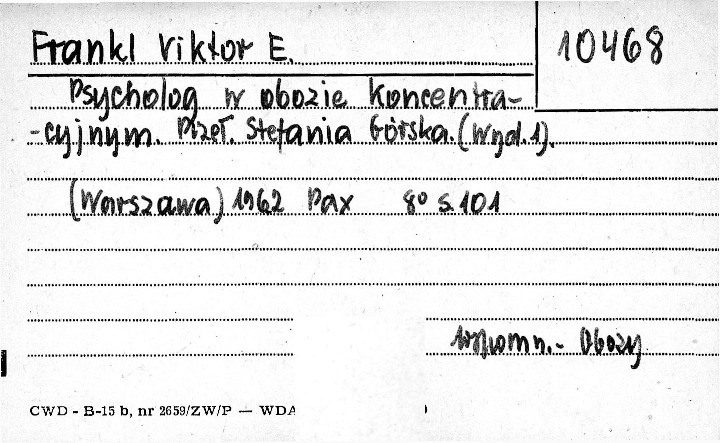 Frankl Viktor E.
10468
Psycholog w obozie koncentra-
-cyjnym. Przeł. Stefania Górska. (Wyd. 1).
(Warszawa) 1962 Pax 8° s. 101
Wspomn. - Obozy
CWD - B-15 b, nr 2659/ZW/P — WDA